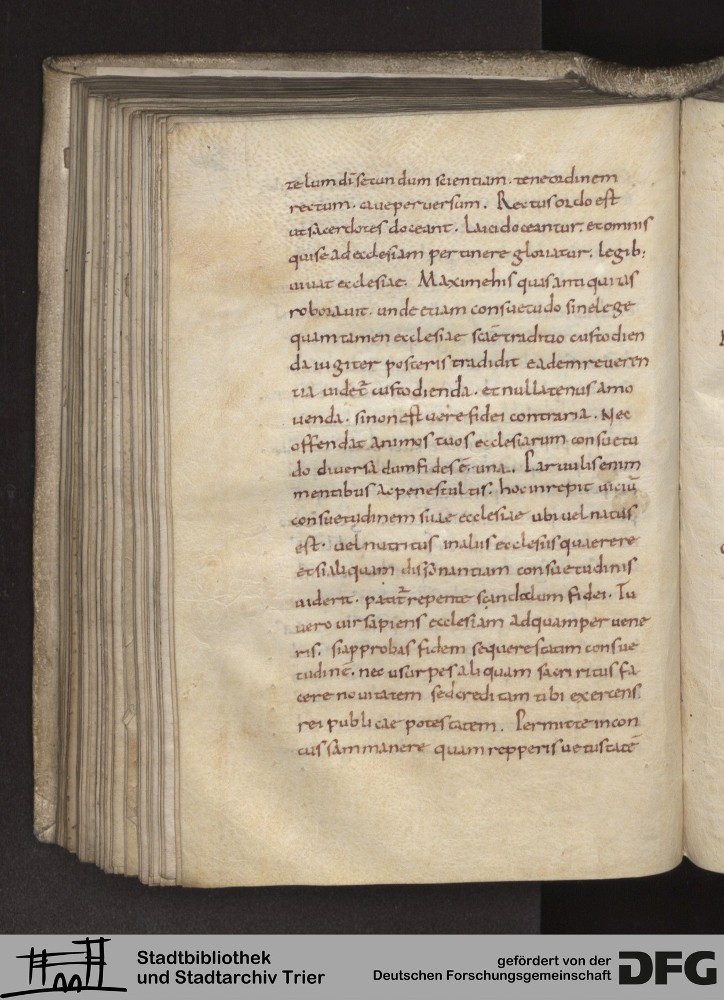 zelum dī secundum scientiam. tene ordinem
rectum. cave perversum. Rectus ordo est
ut sacerdotes doceant. Laici doceantur. et omnis
qui se ad ecclesiam pertinere gloriatur. legib;
vivat ecclesiae. Maxime his quas antiquitas
roboravit. unde etiam consuetudo sine lege
quam tamen ecclesiae scāe traditio custodien
da iugiter posteris tradidit eadem reveren
tia videt̄ custodienda. et nullatenus amo
venda. si non est vere fidei contraria. Nec
offendat animos tuos ecclesiarum consuetu
do diversa dum fides ē una. Parvulis enim
mentibus ac pene stultis. hoc inrepit viciū
consuetudinem suae ecclesiae ubi vel natus
est. vel nutritus in alus ecclesiis quaerere
et si aliquam dissonantiam consuetudinis
viderit. patit̄ repente scandalum fidei. Tu
vero vir sapiens ecclesiam ad quam per vene
ris. si approbas fidem sequere statim consue
tudinē. nec usurpes aliquam sacri ritus fa
cere novitatem sed creditam tibi exercens
rei publicae potestatem. Permitte incon
cussam manere quam repperis vetustatē
Stadtbibliothek
und Stadtarchiv Trier
gefördert von der
Deutschen Forschungsgemeinschaft
DFG